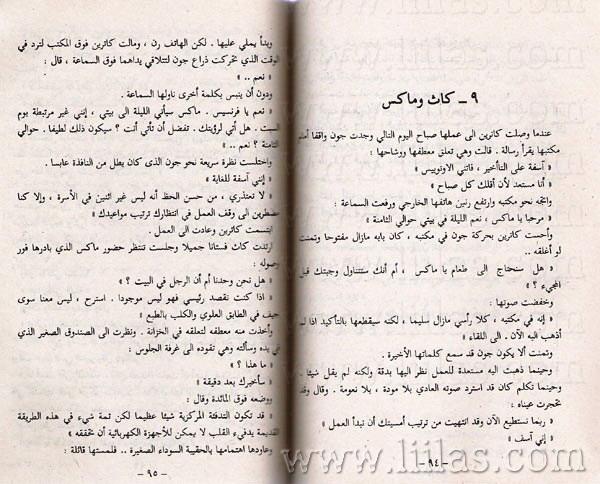 ٩ ـ كاث وماكس
عندما وصلت كاثرين الى عملها صباح اليوم التالي وجدت جون واقفا أمام
مكتبها يقرأ رسالة . قالت وهي تعلق معطفها ووشاحها :
« آسفة على التاأخير ، فاتني الاوتوبيس »
« أنا مستعد لأن أقلك كل صباح »
واتجه نحو مكتبه وارتفع رنين هاتفها الخارجي ورفعت السماعة :
« مرحبا يا ماكس ، نعم الليلة في بيتي حوالي الثامنة »
وأحست كاثرين بحركة جون في مكتبه ، كان بابه مازال مفتوحا وتمنت
لو أغلقه ..
« هل سنحتاج الى طعام يا ماكس ، أم أنك ستتناول وجبتك قبل
المجيء ؟ »
وخفضت صوتها :
« إنه في مكتبه ، كلا رأسي مازال سليما ، لكنه سيقطعها بالتأكيد اذا لم
أذهب اليه الآن . الى اللقاء »
وتمنت ألا يكون جون قد سمع كلماتها الأخيرة .
وحينما ذهبت اليه مستعدة للعمل نظر اليها بدقة ولكنه لم يقل شيئا .
وحينما تكلم كان قد استرد صوته العادي بلا مودة ، بلا نعومة . وقال وقد
تحجرت عيناه :
« ربما نستطيع الآن وقد انتهيت من ترتيب أمسيتك أن نبدأ العمل »
« إني آسف »
ـ ٩٤ ـ
وبدأ يملي عليها . لكن الهاتف رن ، ومالت كاثرين فوق المكتب لترد في
الوقت الذي تحركت ذراع جون لتتلاقي يداهما فوق السماعة ، قال :
« نعم .. »
ودون أن ينبس بكلمة أخرى ناولها السماعة .
« نعم يا فرنسيس . ماكس سيأتي الليلة الى بيتي ، إنني غير مرتبطة يوم
السبت . هل أتي لرؤيتك . تفضل أن تأتي أنت ؟ سيكون ذلك لطيفا . حوالي
الثامنة ؟ نعم .. »
واختلست نظرة سريعة نحو جون الذى كان يطل من النافذة عابسا .
« إنني آسفة للغاية »
« لا تعتذري ، من حسن الحظ أنه ليس غير اثنين في الأسرة ، وإلا كنا
مضطرين الى وقف العمل في انتظارك ترتيب مواعيدك »
ابتسمت كاثرين وعادت الى العمل .
ارتدت كاث فستانا جميلا وجلست تنتظر حضور ماكس الذي بادرها فور
وصوله :
« هل نحن وحدنا أم أن الرجل في البيت ؟ »
« اذا كنت تقصد رئيسي فهو ليس موجودا . استرح ، ليس معنا سوى
جيف في الطابق العلوي والكلب بالطبع »
وأخذت منه معطفه لتعلقه في الخزانة . ونظرت الى الصندوق الصغير الذي
في يده وسألته وهي تقوده الى غرفة الجلوس :
« ما هذا ؟ »
« سأخبرك بعد دقيقة »
ووضعه فوق المائدة وقال :
« قد تكون التدفئة المركزية شيئا عظيما لكن ثمة شيء في هذه الطريقة
القديمة يدفيء القلب لا يمكن للأجهزة الكهربائية أن تحققه »
وعاودها اهتمامها بالحقيبة السوداء الصغيرة .. فلمستها قائلة :
ـ ٩٥ ـ
www.liilas.com